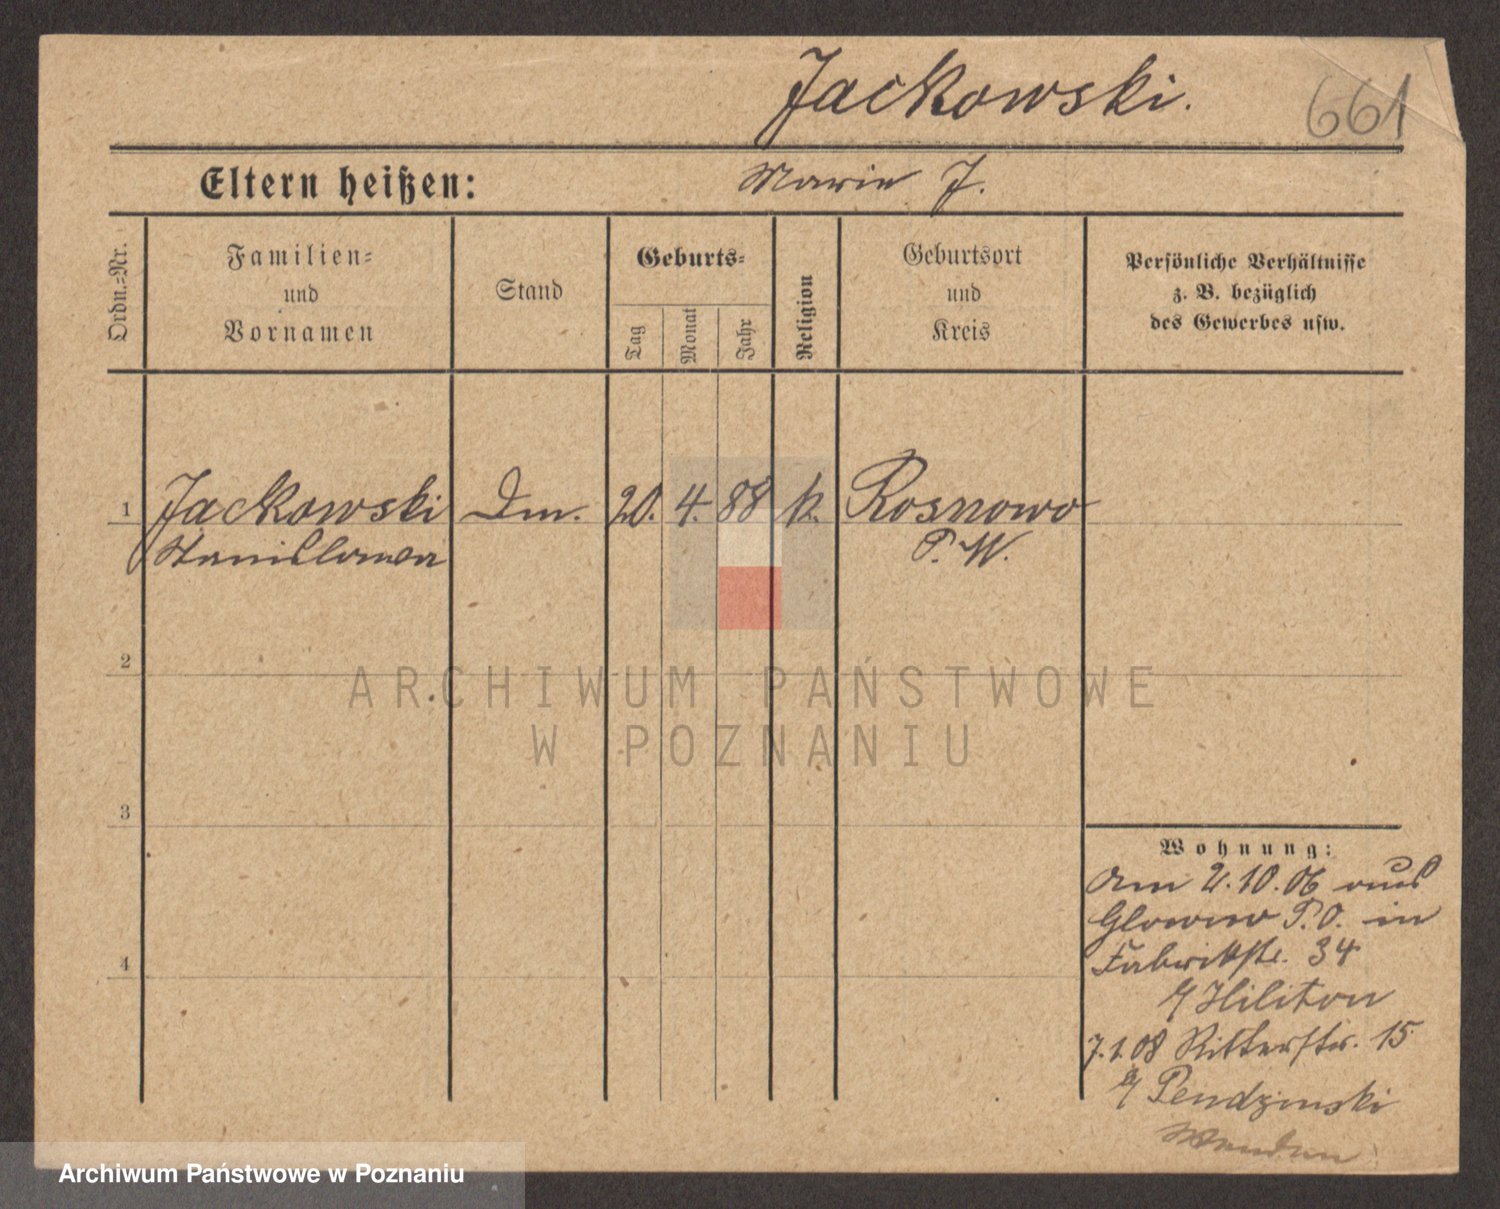 Jackowski.
661
Eltern heißen:
Marie J.
Ordn.=Nr.
Familien=
und
Vornamen
Stand
Geburts=
Tag
Monat
Jahr
Religion
Geburtsort
und
Kreis
Persönliche Verhältnisse
z. B. bezüglich
des Gewerbes usw.
1
Jackowski
Dm.
20.
4.
88
k.
Rosnowo
Stanislawa
P. W.
2
ARCHIWUM PAŃSTWOWE
W POZNANIU
3
Wohnung:
Am 2.10.06 aus
Glowno P.O. in
Fabrikstr. 34
4
b/ Hiliton
7.1.08 Ritterstr. 15
b/ Pendzinski
Wenden
Archiwum Państwowe w Poznaniu